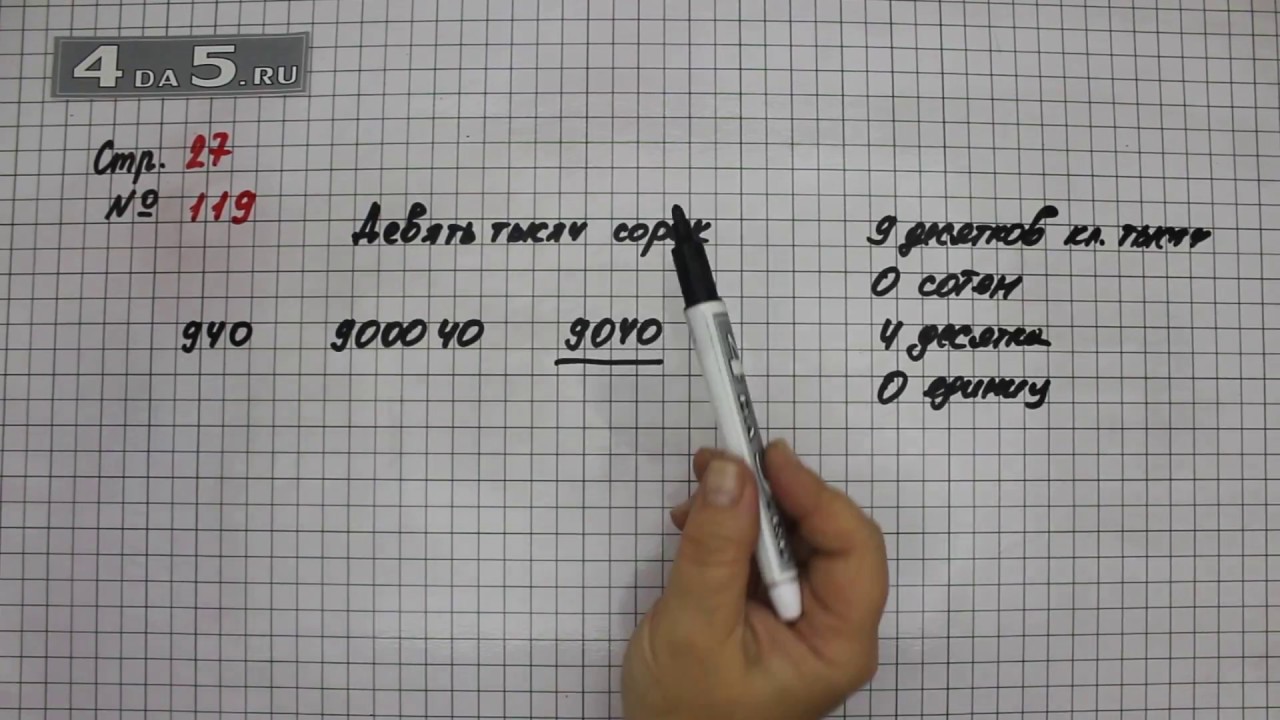 4 DA 5.RU
Стр. 27
№ 119
Девять тысяч сорок
940 900040 9040
9 десятков кл. тысяч
0 сотен
4 десятка
0 единиц